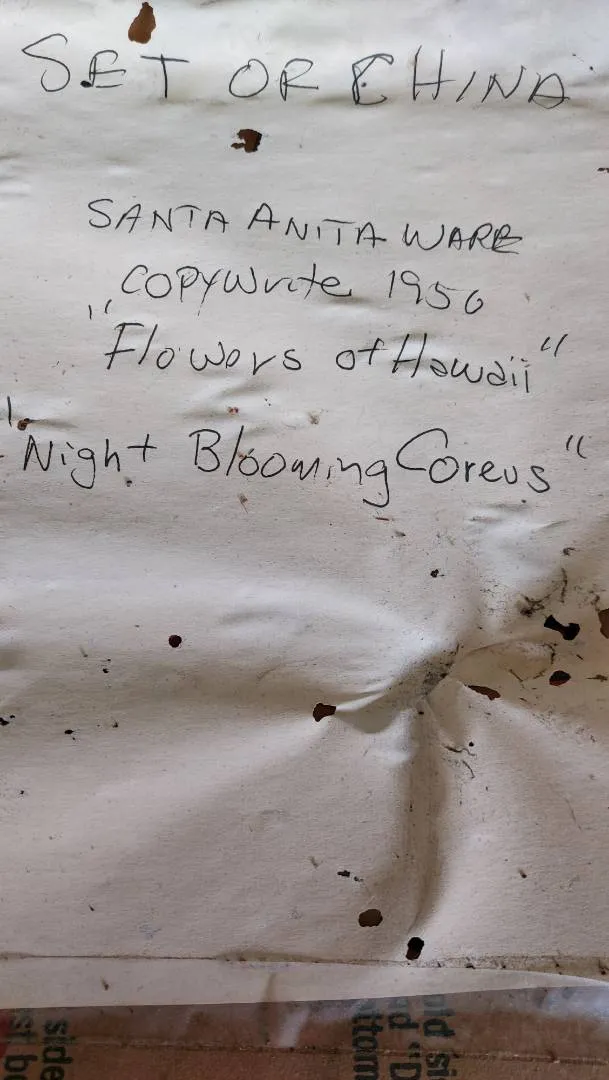 SET OF CHINA
SANTA ANITA WARE
COPYWrite 1950
"Flowers of Hawaii"
"Night Blooming Coreus"
side
st b
old si
d "D
ttom